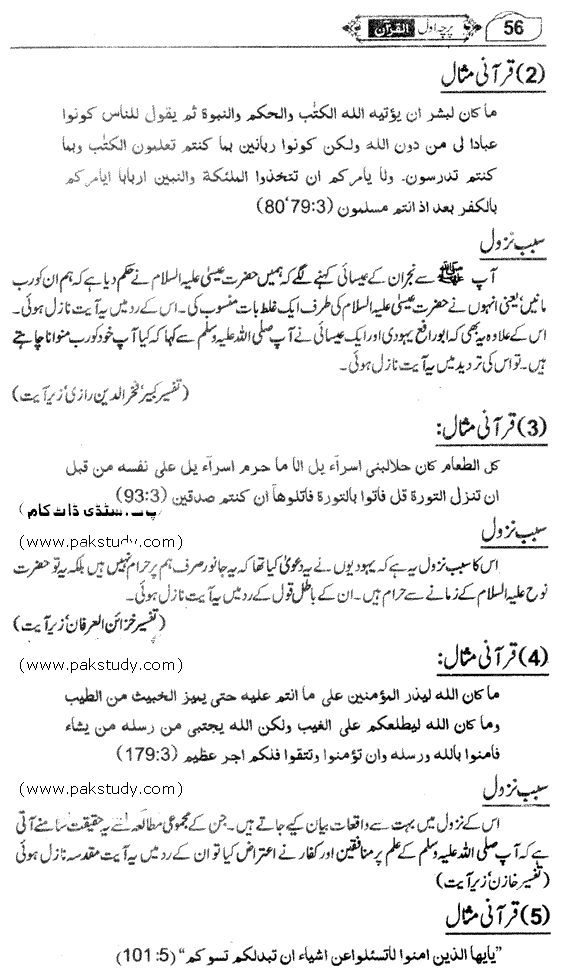 56 پرچہ اول القرآن
(2) قرآنی مثال
ما کان لبشر ان یؤتیه الله الکتٰب والحکم والنبوة ثم یقول للناس کونوا
عبادا لی من دون الله ولکن کونوا ربانین بما کنتم تعلمون الکتٰب وبما
کنتم تدرسون. ولا یامرکم ان تتخذوا الملئکة والنبین اربابا ایامرکم
بالکفر بعد اذ انتم مسلمون (80٬79:3)
سبب نزول
آپ ﷺ سے نجران کے عیسائی کہنے لگے کہ ہمیں حضرت عیسیٰ علیہ السلام نے حکم دیا ہے کہ ہم ان کو رب
مانیں' یعنی انہوں نے حضرت عیسیٰ علیہ السلام کی طرف ایک غلط بات منسوب کی۔ اس کے رد میں یہ آیت نازل ہوئی۔
اس کے علاوہ یہ بھی کہ ابو رافع یہودی اور ایک عیسائی نے آپ صلی اللہ علیہ وسلم سے کہا کہ کیا آپ خود کو رب منوانا چاہتے
ہیں۔ تو اس کی تردید میں یہ آیت نازل ہوئی۔
(تفسیر کبیر' فخر الدین رازی' زیر آیت)
(3) قرآنی مثال:
کل الطعام کان حلالبنی اسرآء یل الا ما حرم اسرآء یل علی نفسه من قبل
ان تنزل التورة قل فاتوا بالتورة فاتلوها ان کنتم صدقین (93:3)
سٹڈی ڈاٹ کام)
سبب نزول
(www.pakstudy.com)
اس کا سبب نزول یہ ہے کہ یہودیوں نے یہ دعویٰ کیا تھا کہ یہ جانور صرف ہم پر حرام نہیں ہیں بلکہ یہ تو حضرت
نوح علیہ السلام کے زمانے سے حرام ہیں۔ ان کے باطل قول کے رد میں یہ آیت نازل ہوئی۔
(تفسیر خزائن العرفان' زیر آیت)
(4) قرآنی مثال:
(www.pakstudy.com)
ما کان الله لیذر المؤمنین علی ما انتم علیه حتی یمیز الخبیث من الطیب
وما کان الله لیطلعکم علی الغیب ولکن الله یجتبی من رسله من یشاء
فامنوا بالله ورسله وان تؤمنوا وتتقوا فلکم اجر عظیم (179:3)
(www.pakstudy.com)
سبب نزول
اس کے نزول میں بہت سے واقعات بیان کیے جاتے ہیں۔ جن کے مجموعی مطالعہ سے یہ حقیقت سامنے آتی
ہے کہ آپ صلی اللہ علیہ وسلم کے علم پر منافقین اور کفار نے اعتراض کیا تو ان کے رد میں یہ آیت مقدسہ نازل ہوئی
(تفسیر خازن' زیر آیت)
(5) قرآنی مثال
"یایها الذین امنوا لاتسئلوا عن اشیاء ان تبدلکم تسوکم" (101:5)